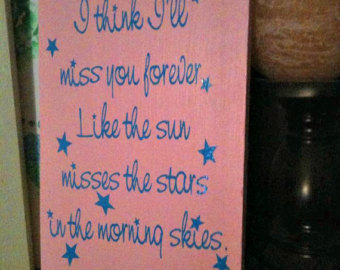 I think I'll
miss you forever
Like the sun
misses the stars
in the morning skies.